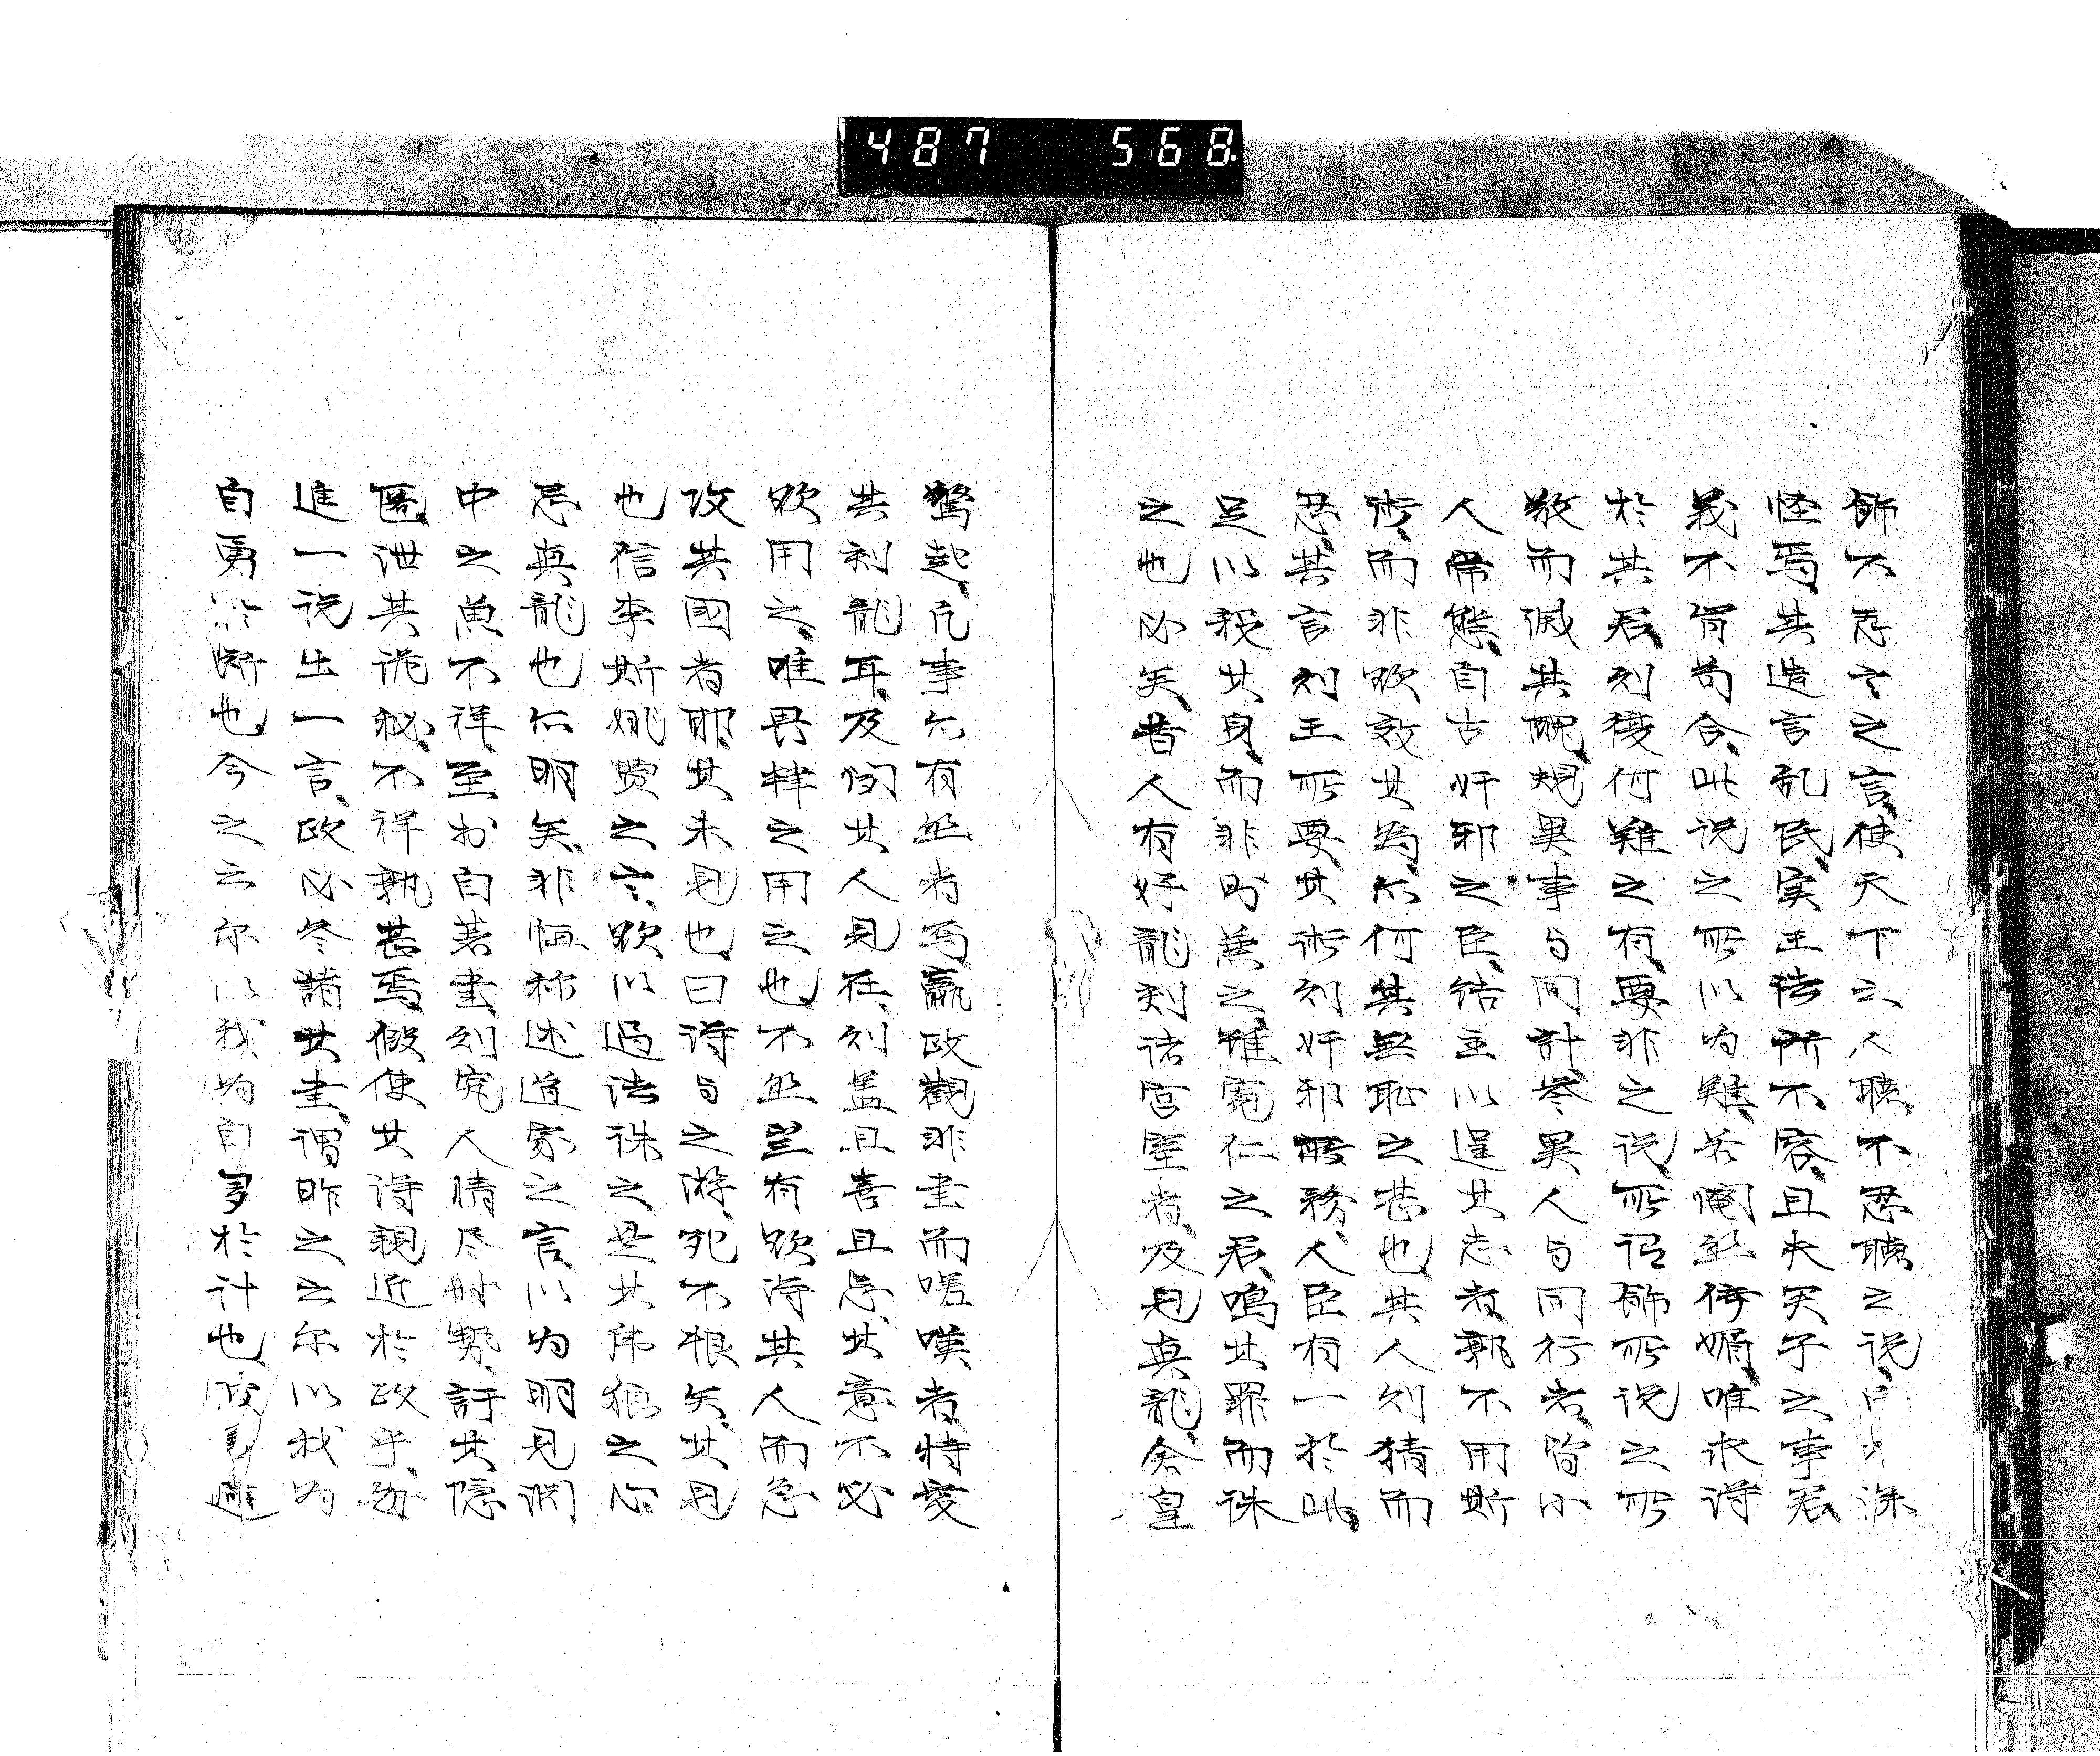 487 568
飾不忍言之言使天下之人聴不忍聴之説深
怪焉其造言乱民実王法所不容且夫天子之事君
義不肯苟合此説之所以為難若閹然侫媚唯求得
於其君則獲何難之有要非之説所謂飾所説之所
敬而滅其醜規異事与同計誉異人与同行者皆小
人常態自古奸邪之臣結主以逞其志者孰不用斯
術而非欲效其為亦何其無恥之甚也其人則猜而
忍其言則王所要其術則奸邪所務人臣有一於此
足以殺其身而非則兼之雖寛仁之君鳴其罪而誅
之也必矣昔人有好龍刻諸宮室者及見真龍倉皇
驚起凡事亦有然者焉嬴政観非書而嗟嘆者特愛
其刻龍耳及閲其人見在則蓋且喜且忌其意不必
欲用之唯畏韓之用之也不然豈有欲得其人而急
攻其国者耶其未見也曰得与之游死不恨矣其見
也信李斯姚賈之言欲以過法誅之是其虎狼之心
忌真龍也亦明矣非恒称述道家之言以為明見淵
中之魚不祥至於自著書則究人情尽時勢訐其隠
匿泄其詭秘不祥孰甚焉仮使其得親近於政乎毎
進一説出一言政必参諸其書謂昨之云尓以我為
自勇於断也今之云尓以我為自多於計也